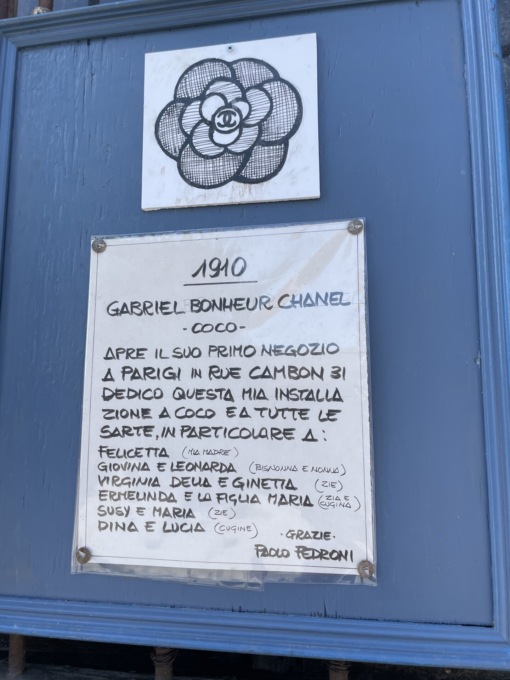 1910
GABRIEL BONHEUR CHANEL
-COCO-
APRE IL SUO PRIMO NEGOZIO
A PARIGI IN RUE CAMBON 31
DEDICO QUESTA MIA INSTALLA
ZIONE A COCO E A TUTTE LE
SARTE, IN PARTICOLARE A:
FELICETTA (MIA MADRE)
GIOVINA E LEONARDA (BISNONNA E NONNA)
VIRGINIA DELIA E GINETTA (ZIE)
ERMELINDA E LA FIGLIA MARIA (ZIA E CUGINA)
SUSY E MARIA (ZIE)
DINA E LUCIA (CUGINE)
·GRAZIE·
PAOLO PEDRONI